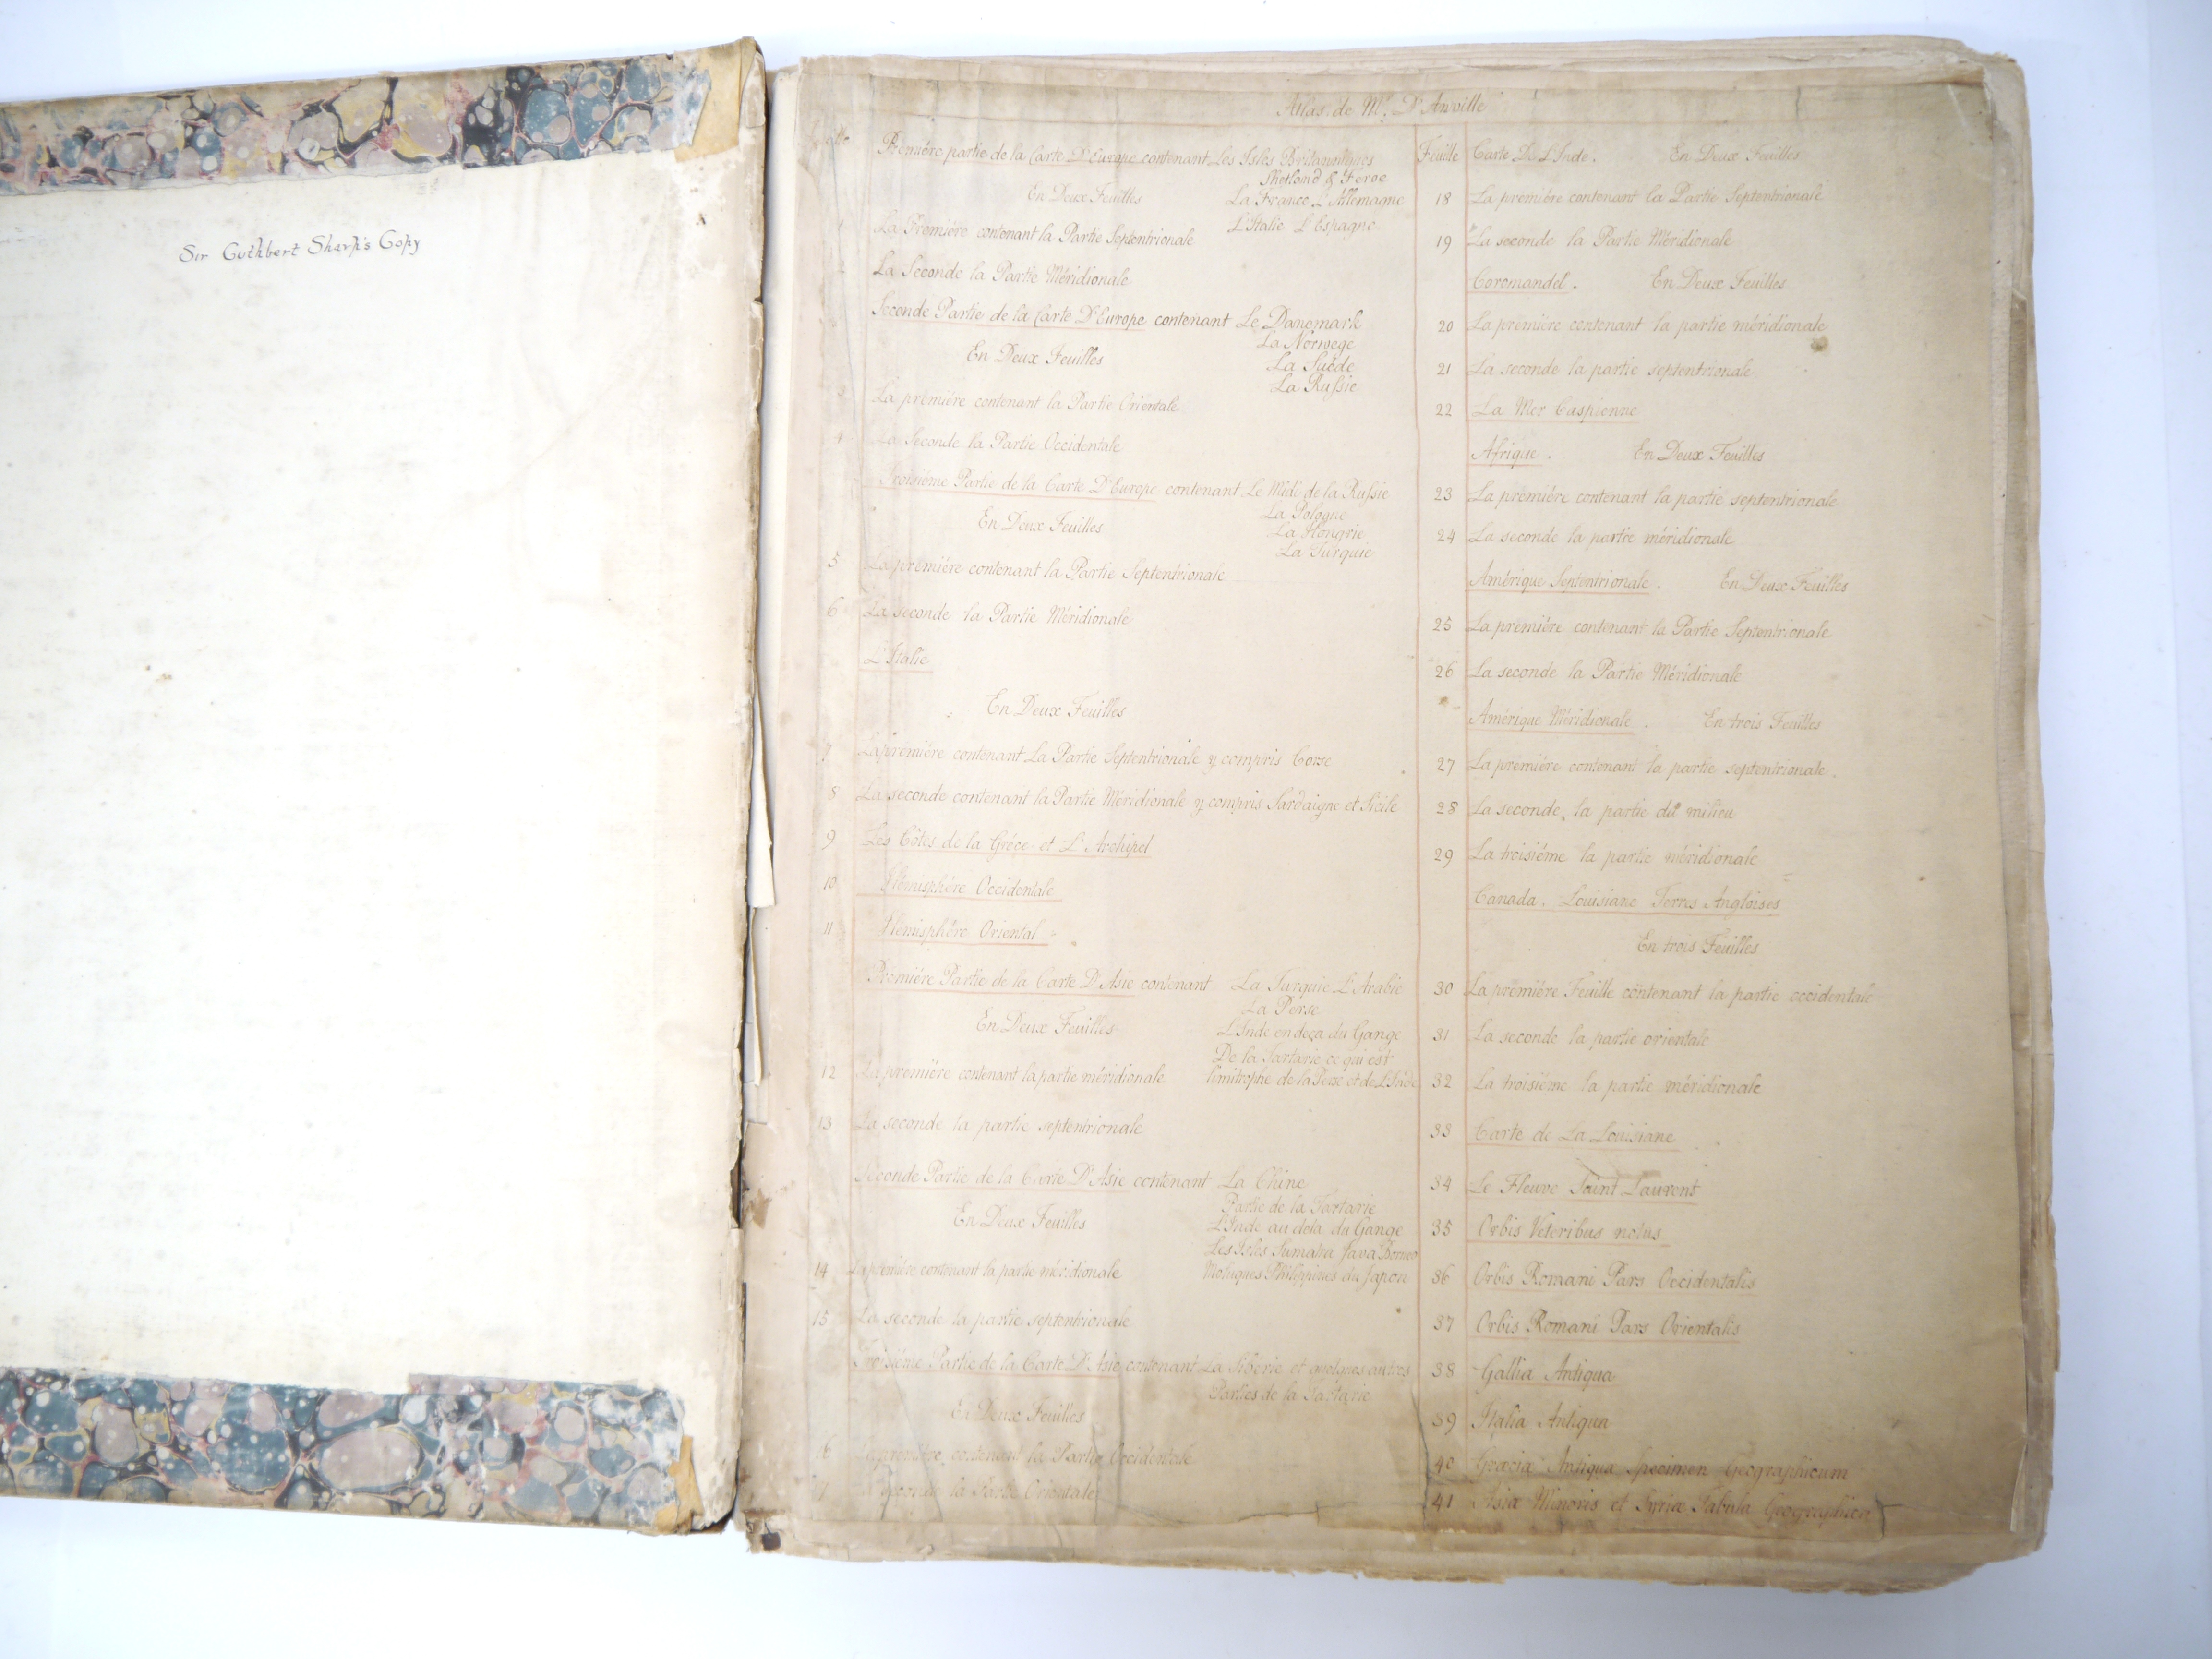 Sir Cuthbert Sharp's Copy
Atlas de Mr. D'Anville
Feuille
Première partie de la Carte D'Europe contenant Les Isles Britanniques
Shetland & Feroe
En Deux Feuilles La France L'Allemagne
L'Italie L'Espagne
1 La Première contenant la Partie Septentrionale
2 La Seconde la Partie Méridionale
Seconde Partie de la Carte D'Europe contenant Le Danemark
La Norwege
En Deux Feuilles La Suède
La Russie
3 La première contenant la Partie Orientale
4 La Seconde la Partie Occidentale
Troisième Partie de la Carte D'Europe contenant Le Midi de la Russie
La Pologne
En Deux Feuilles La Hongrie
La Turquie
5 La première contenant la Partie Septentrionale
6 La seconde la Partie Méridionale
L'Italie
En Deux Feuilles
7 La première contenant La Partie Septentrionale y compris Corse
8 La seconde contenant la Partie Méridionale y compris Sardaigne et Sicile
9 Les Côtes de la Gréce et L'Archipel
10 Hémisphère Occidentale
11 Hémisphère Oriental
Première Partie de la Carte D'Asie contenant La Turquie L'Arabie
La Perse
En Deux Feuilles L'Inde en deça du Gange
De la Tartarie ce qui est
limitrophe de la Perse et de L'Inde
12 La première contenant la partie méridionale
13 La seconde la partie septentrionale
Seconde Partie de la Carte D'Asie contenant La Chine
Partie de la Tartarie
En Deux Feuilles L'Inde au dela du Gange
Les Isles Sumatra Java Borneo
Moluques Philippines du Japon
14 La première contenant la partie méridionale
15 La seconde la partie septentrionale
Troisième Partie de la Carte D'Asie contenant La Sibérie et quelques autres
Parties de la Tartarie
En Deux Feuilles
16 La première contenant la Partie Occidentale
17 La Seconde la Partie Orientale
Feuille Carte De L'Inde. En Deux Feuilles
18 La première contenant la Partie Septentrionale
19 La seconde la Partie Méridionale
Coromandel. En Deux Feuilles
20 La première contenant la partie méridionale
21 La seconde la partie septentrionale
22 La Mer Caspienne
Afrique. En Deux Feuilles
23 La première contenant la partie septentrionale
24 La seconde la partie méridionale
Amérique Septentrionale. En Deux Feuilles
25 La première contenant la Partie Septentrionale
26 La seconde la Partie Méridionale
Amérique Méridionale. En trois Feuilles
27 La première contenant la partie septentrionale.
28 La seconde, la partie du milieu
29 La troisième la partie méridionale
Canada. Louisiane Terres Angloises
En trois Feuilles
30 La première Feuille contenant la partie occidentale
31 La seconde la partie orientale
32 La troisième la partie méridionale
33 Carte de La Louisiane
34 Le Fleuve Saint Laurent
35 Orbis Veteribus notus
36 Orbis Romani Pars Occidentalis
37 Orbis Romani Pars Orientalis
38 Gallia Antiqua
39 Italia Antiqua
40 Græciæ Antiquæ Specimen Geographicum
41 Asiæ Minoris et Syriæ Tabula Geographica